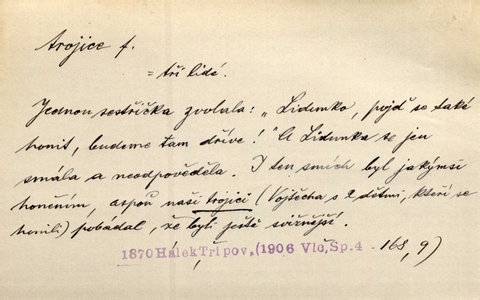 trojice f.
= tři lidé.
Jednou sestřička zvolala: „Lidunko, pojď se také
honit, budeme tam dříve!" A Lidunka se jen
smála a neodpověděla. I ten smích byl jakýmsi
honěním, aspoň naši trojici (Vojšecha s 2 dětmi, kteří se
honili) pobádal, že byli ještě svižnější.
1870HálekTři pov.,(1906 Vlč,Sp.4 168, 9)